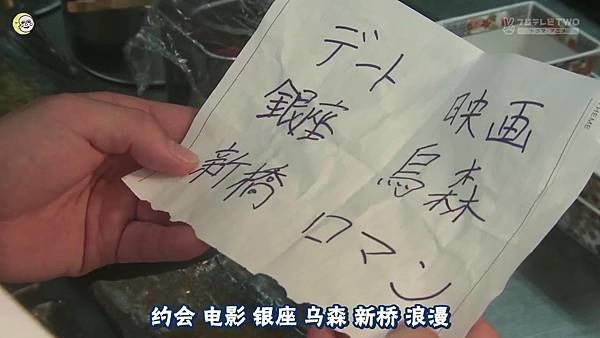 フジテレビTWO
ドラマ・アニメ
デート
映画
銀座
烏森
新橋
ロマン
THEME
约会 电影 银座 乌森 新桥 浪漫